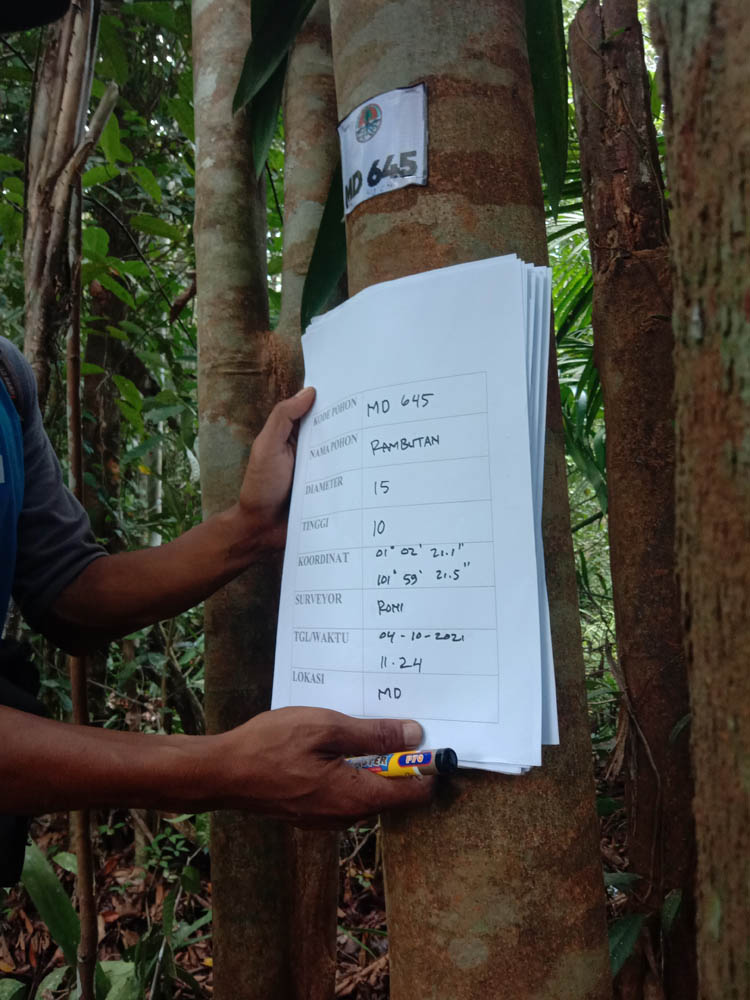 MD 645
KODE POHON MD 645
NAMA POHON RAMBUTAN
DIAMETER 15
TINGGI 10
KOORDINAT 01° 02' 21.1"
101° 59' 21.5"
SURVEYOR RONI
TGL/WAKTU 04-10-2021
11.24
LOKASI MD
PRO